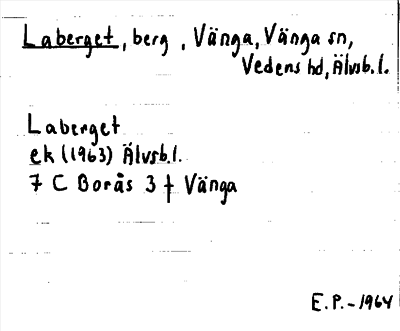 Laberget, berg, Vänga, Vänga sn,
Vedens hd, Älvsb.l.
Laberget
ek (1963) Älvsb.l.
7 C Borås 3 f Vänga
E.P.-1964